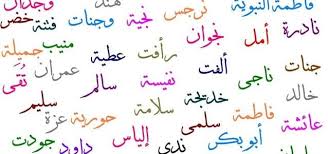 فاطمة النبوية نرجس هند وجدان
نادرة أمل نجوان نجية وجنات فتنة خضر
جنات ناجى ألفت رأفت عطية منيب جميلة
خالد نفيسة سالم عمران تُقى
عائشة فاطمة خديجة سلامة حورية سليم
أبوبكر سلمى ندى إلياس عزة داود جودت